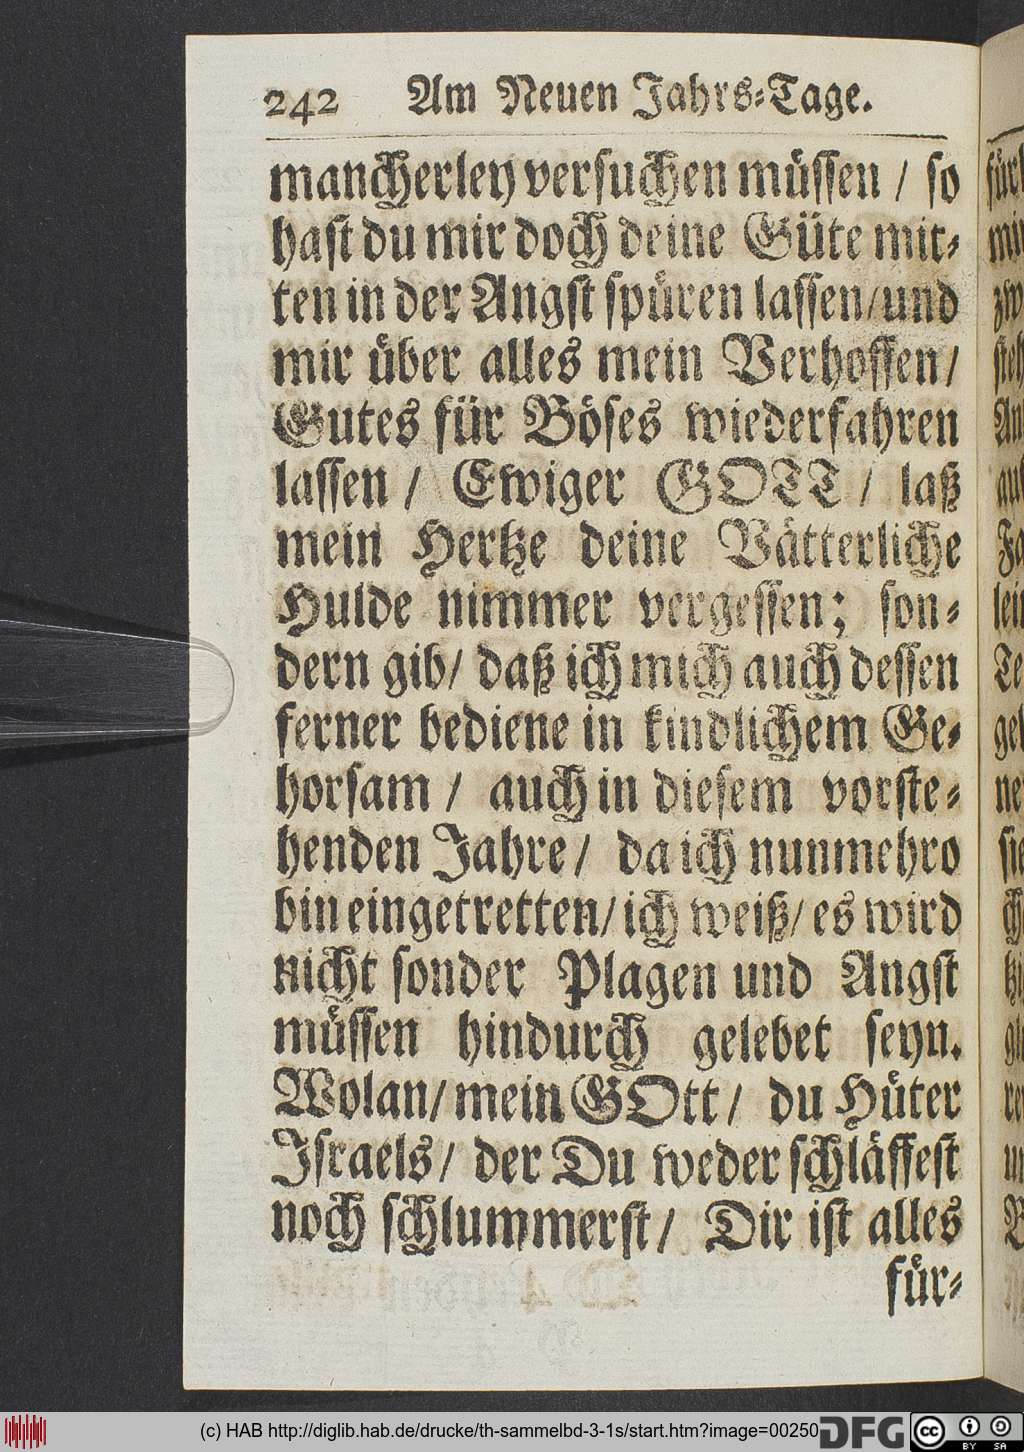 242 Am Neuen Jahrs-Tage.
mancherley versuchen müssen / so
hast du mir doch deine Güte mit-
ten in der Angst spüren lassen/und
mir über alles mein Verhoffen/
Gutes für Böses wiederfahren
lassen / Ewiger GOTT / laß
mein Hertze deine Vätterliche
Hulde nimmer vergessen; son-
dern gib/ daß ich mich auch dessen
ferner bediene in kindlichem Ge-
horsam / auch in diesem vorste-
henden Jahre/ da ich nunmehro
bin eingetretten/ ich weiß/ es wird
nicht sonder Plagen und Angst
müssen hindurch gelebet seyn.
Wolan/ mein GOtt/ du Hüter
Israels/ der Du weder schläffest
noch schlummerst/ Dir ist alles
für-
(c) HAB http://diglib.hab.de/drucke/th-sammelbd-3-1s/start.htm?image=00250
DFG
cc
BY SA